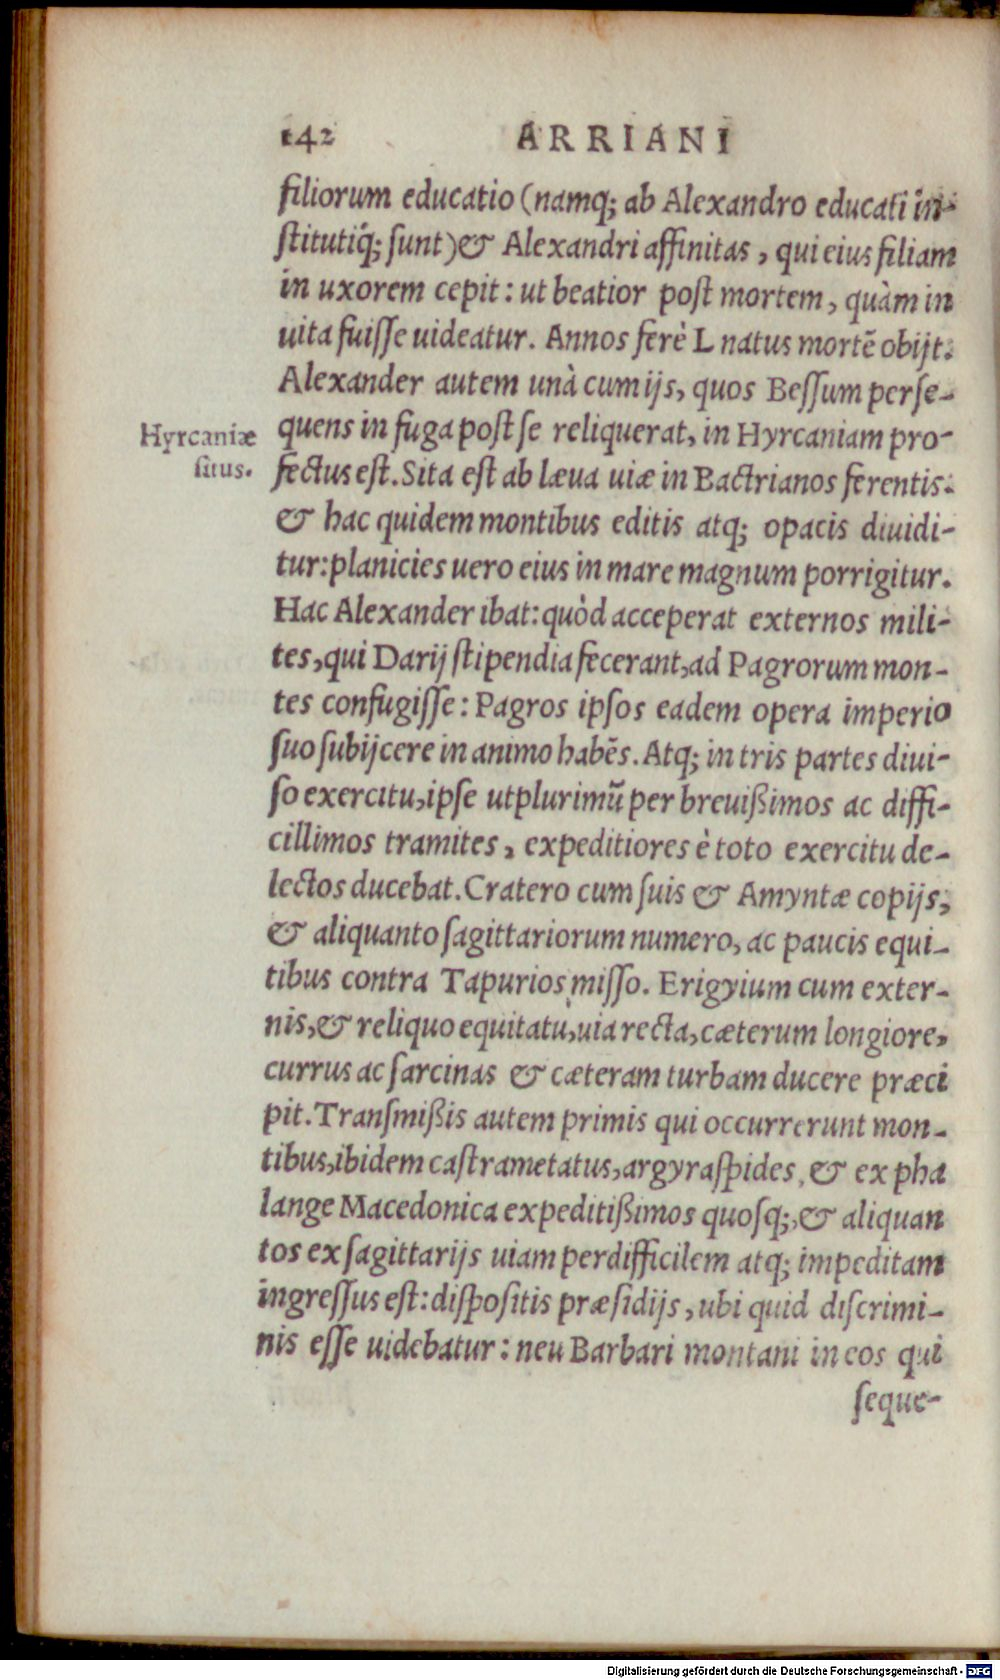 142 ARRIANI
filiorum educatio (namq; ab Alexandro educati in-
ſtitutiq́; ſunt) & Alexandri affinitas, qui eius filiam
in uxorem cepit: ut beatior poſt mortem, quàm in
uita fuiſſe uideatur. Annos ferè L natus mortē obijt.
Alexander autem unà cum ijs, quos Beſſum perſe-
Hyrcaniæ
ſitus.
quens in fuga poſt ſe reliquerat, in Hyrcaniam pro-
fectus eſt. Sita eſt ab læua uiæ in Bactrianos ferentis:
& hac quidem montibus editis atq; opacis diuidi-
tur: planicies uero eius in mare magnum porrigitur.
Hac Alexander ibat: quòd acceperat externos mili-
tes, qui Darij ſtipendia fecerant, ad Pagrorum mon-
tes confugiſſe: Pagros ipſos eadem opera imperio
ſuo ſubijcere in animo habēs. Atq; in tris partes diui-
ſo exercitu, ipſe utplurimū per breuißimos ac diffi-
cillimos tramites, expeditiores è toto exercitu de-
lectos ducebat. Cratero cum ſuis & Amyntæ copijs,
& aliquanto ſagittariorum numero, ac paucis equi-
tibus contra Tapurios miſſo. Erigyium cum exter-
nis, & reliquo equitatu, uia recta, cæterum longiore,
currus ac ſarcinas & cæteram turbam ducere præci
pit. Tranſmißis autem primis qui occurrerunt mon-
tibus, ibidem caſtrametatus, argyraſpides, & ex pha
lange Macedonica expeditißimos quoſq;, & aliquan
tos ex ſagittarijs uiam perdifficilem atq; impeditam
ingreſſus eſt: diſpoſitis præſidijs, ubi quid diſcrimi-
nis eſſe uidebatur: neu Barbari montani in eos qui
ſeque-
Digitalisierung gefördert durch die Deutsche Forschungsgemeinschaft - DFG